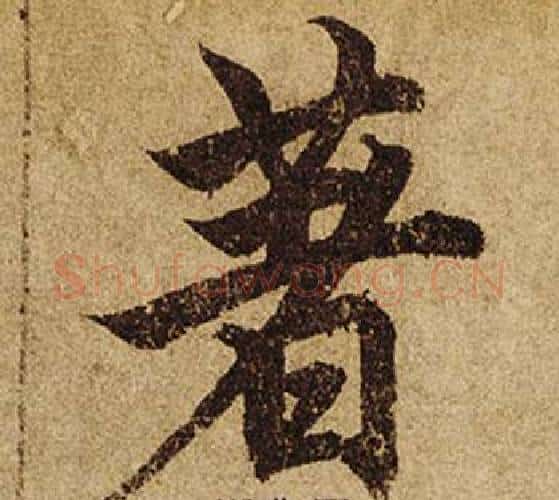 著
Shufawang.CN